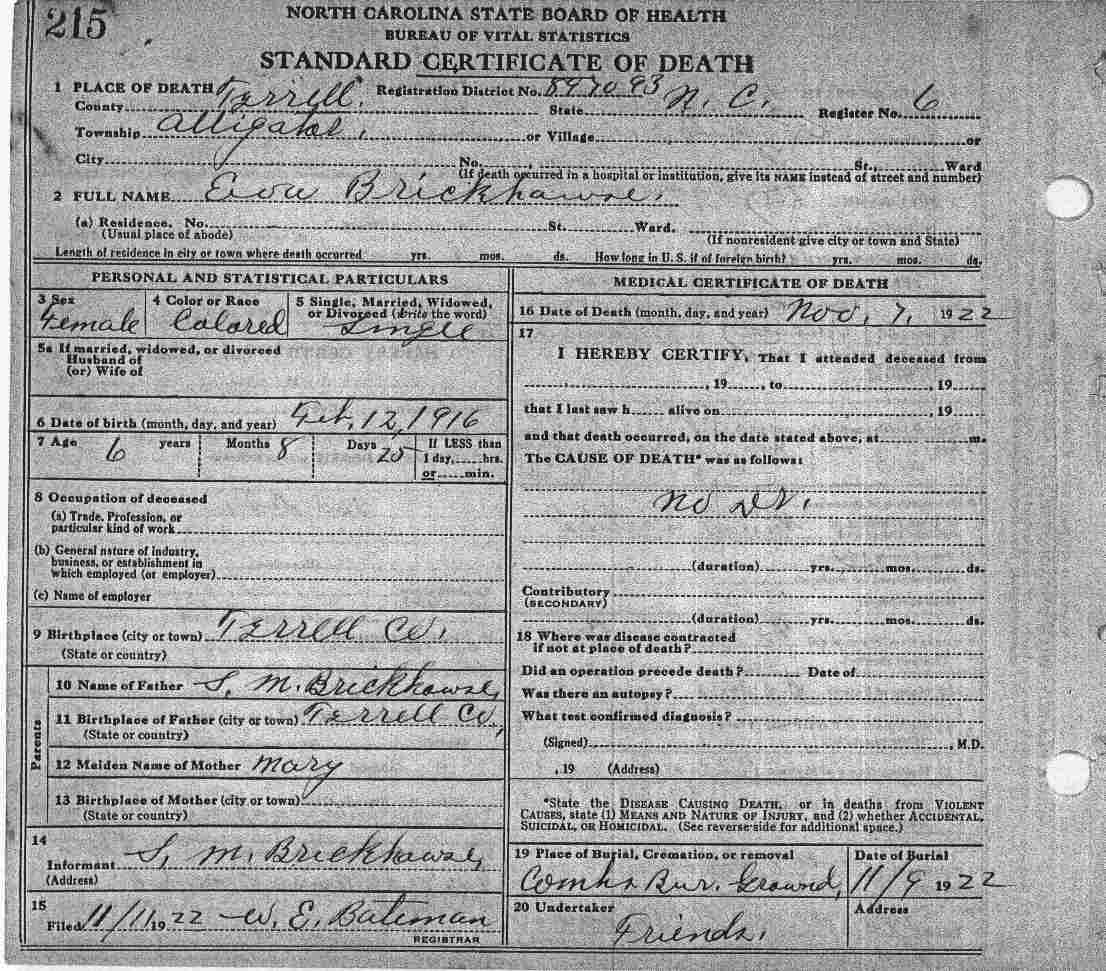 215
NORTH CAROLINA STATE BOARD OF HEALTH
BUREAU OF VITAL STATISTICS
STANDARD CERTIFICATE OF DEATH
1 PLACE OF DEATH Registration District No. 897093
County Terrell. State N. C. Register No. 6
Township Alligator. or Village or
City No. , St., Ward
(If death occurred in a hospital or institution, give its NAME instead of street and number)
2 FULL NAME Brickhawse.
(a) Residence. No. St. Ward.
(Usual place of abode) (If nonresident give city or town and State)
Length of residence in city or town where death occurred yrs. mos. ds. How long in U. S. if of foreign birth? yrs. mos. ds.
PERSONAL AND STATISTICAL PARTICULARS
3 Sex 4 Color or Race 5 Single, Married, Widowed, or Divorced (write the word)
Female Colored Single
5a If married, widowed, or divorced
Husband of
(or) Wife of
6 Date of birth (month, day, and year) Feb. 12, 1916
7 Age 6 years Months 8 Days 25 If LESS than
1 day, hrs.
or min.
8 Occupation of deceased
(a) Trade, Profession, or
particular kind of work
(b) General nature of industry,
business, or establishment in
which employed (or employer)
(c) Name of employer
9 Birthplace (city or town) Terrell Co.
(State or country)
Parents
10 Name of Father S. M. Brickhawse,
11 Birthplace of Father (city or town) Terrell Co,
(State or country)
12 Maiden Name of Mother Mary
13 Birthplace of Mother (city or town)
(State or country)
14
Informant S. M. Brickhawse,
(Address)
15
Filed 11/11 1922 W. E. Bateman
REGISTRAR
MEDICAL CERTIFICATE OF DEATH
16 Date of Death (month, day, and year) Nov. 7, 1922
17
I HEREBY CERTIFY, That I attended deceased from
, 19 , to , 19
that I last saw h alive on , 19
and that death occurred, on the date stated above, at m.
The CAUSE OF DEATH* was as follows:
No Dr.
(duration) yrs. mos. ds.
Contributory
(SECONDARY)
(duration) yrs. mos. ds.
18 Where was disease contracted
if not at place of death?
Did an operation precede death? Date of
Was there an autopsy?
What test confirmed diagnosis?
(Signed) , M.D.
, 19 (Address)
*State the DISEASE CAUSING DEATH, or in deaths from VIOLENT
CAUSES, state (1) MEANS AND NATURE OF INJURY, and (2) whether ACCIDENTAL,
SUICIDAL, OR HOMICIDAL. (See reverse side for additional space.)
19 Place of Burial, Cremation, or removal Date of Burial
Combs Bur. Ground, 11/9 1922
20 Undertaker Address
Friends.